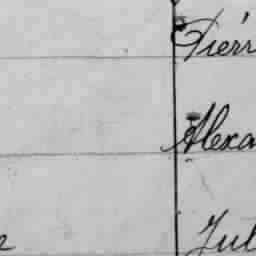 Pierr
Alexa
Jul